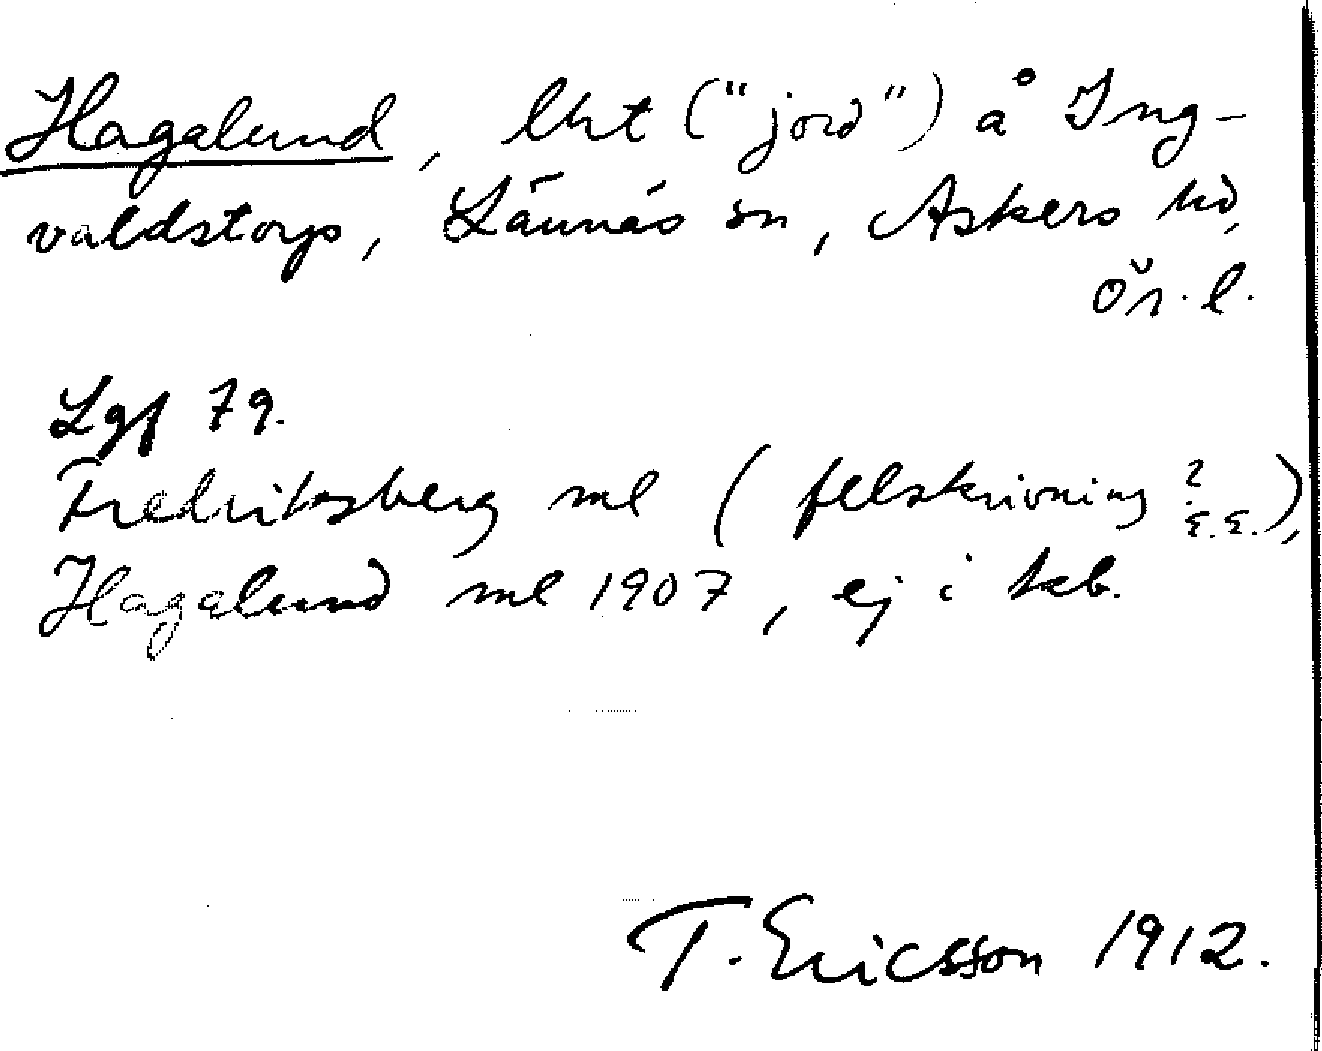 Hagalund, lht ("jord") å Ing-
valdstorp, Lännäs sn, Askers hd,
Ör. l.
Lgf 79.
Fredriksberg ml (felskrivning?
E.E.),
Hagalund ml 1907, ej i kb.
T. Ericsson 1912.